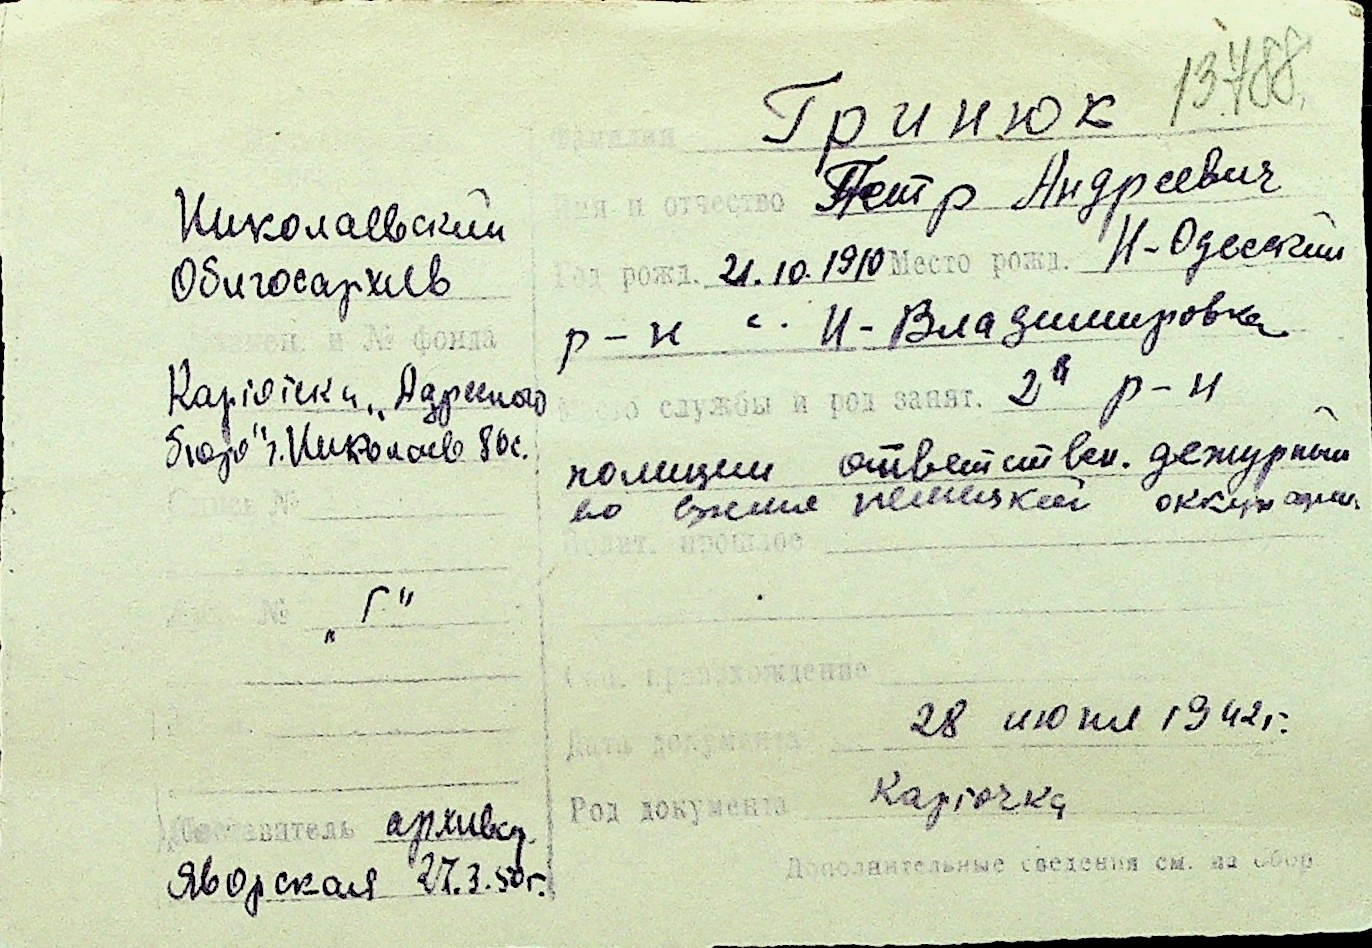 13788.
Фамилия Гринюк
Имя и отчество Петр Андреевич
Год рожд. 21.10.1910 Место рожд. Н-Одесский
р-н с. Н-Владимировка
Место службы и род занят. 2й р-н
полиции ответствен. дежурный
во время немецкой оккупации.
Полит. прошлое
Соц. происхождение
Дата документа 28 июля 1942г.
Род документа Карточка
Дополнительные сведения см. на обор
Николаевский
Облгосархив
и № фонда
Картотека „Адресного
бюро" г. Николаев
Опись №
№ „Г"
Составитель архивар.
Яворская 27.3.50г.